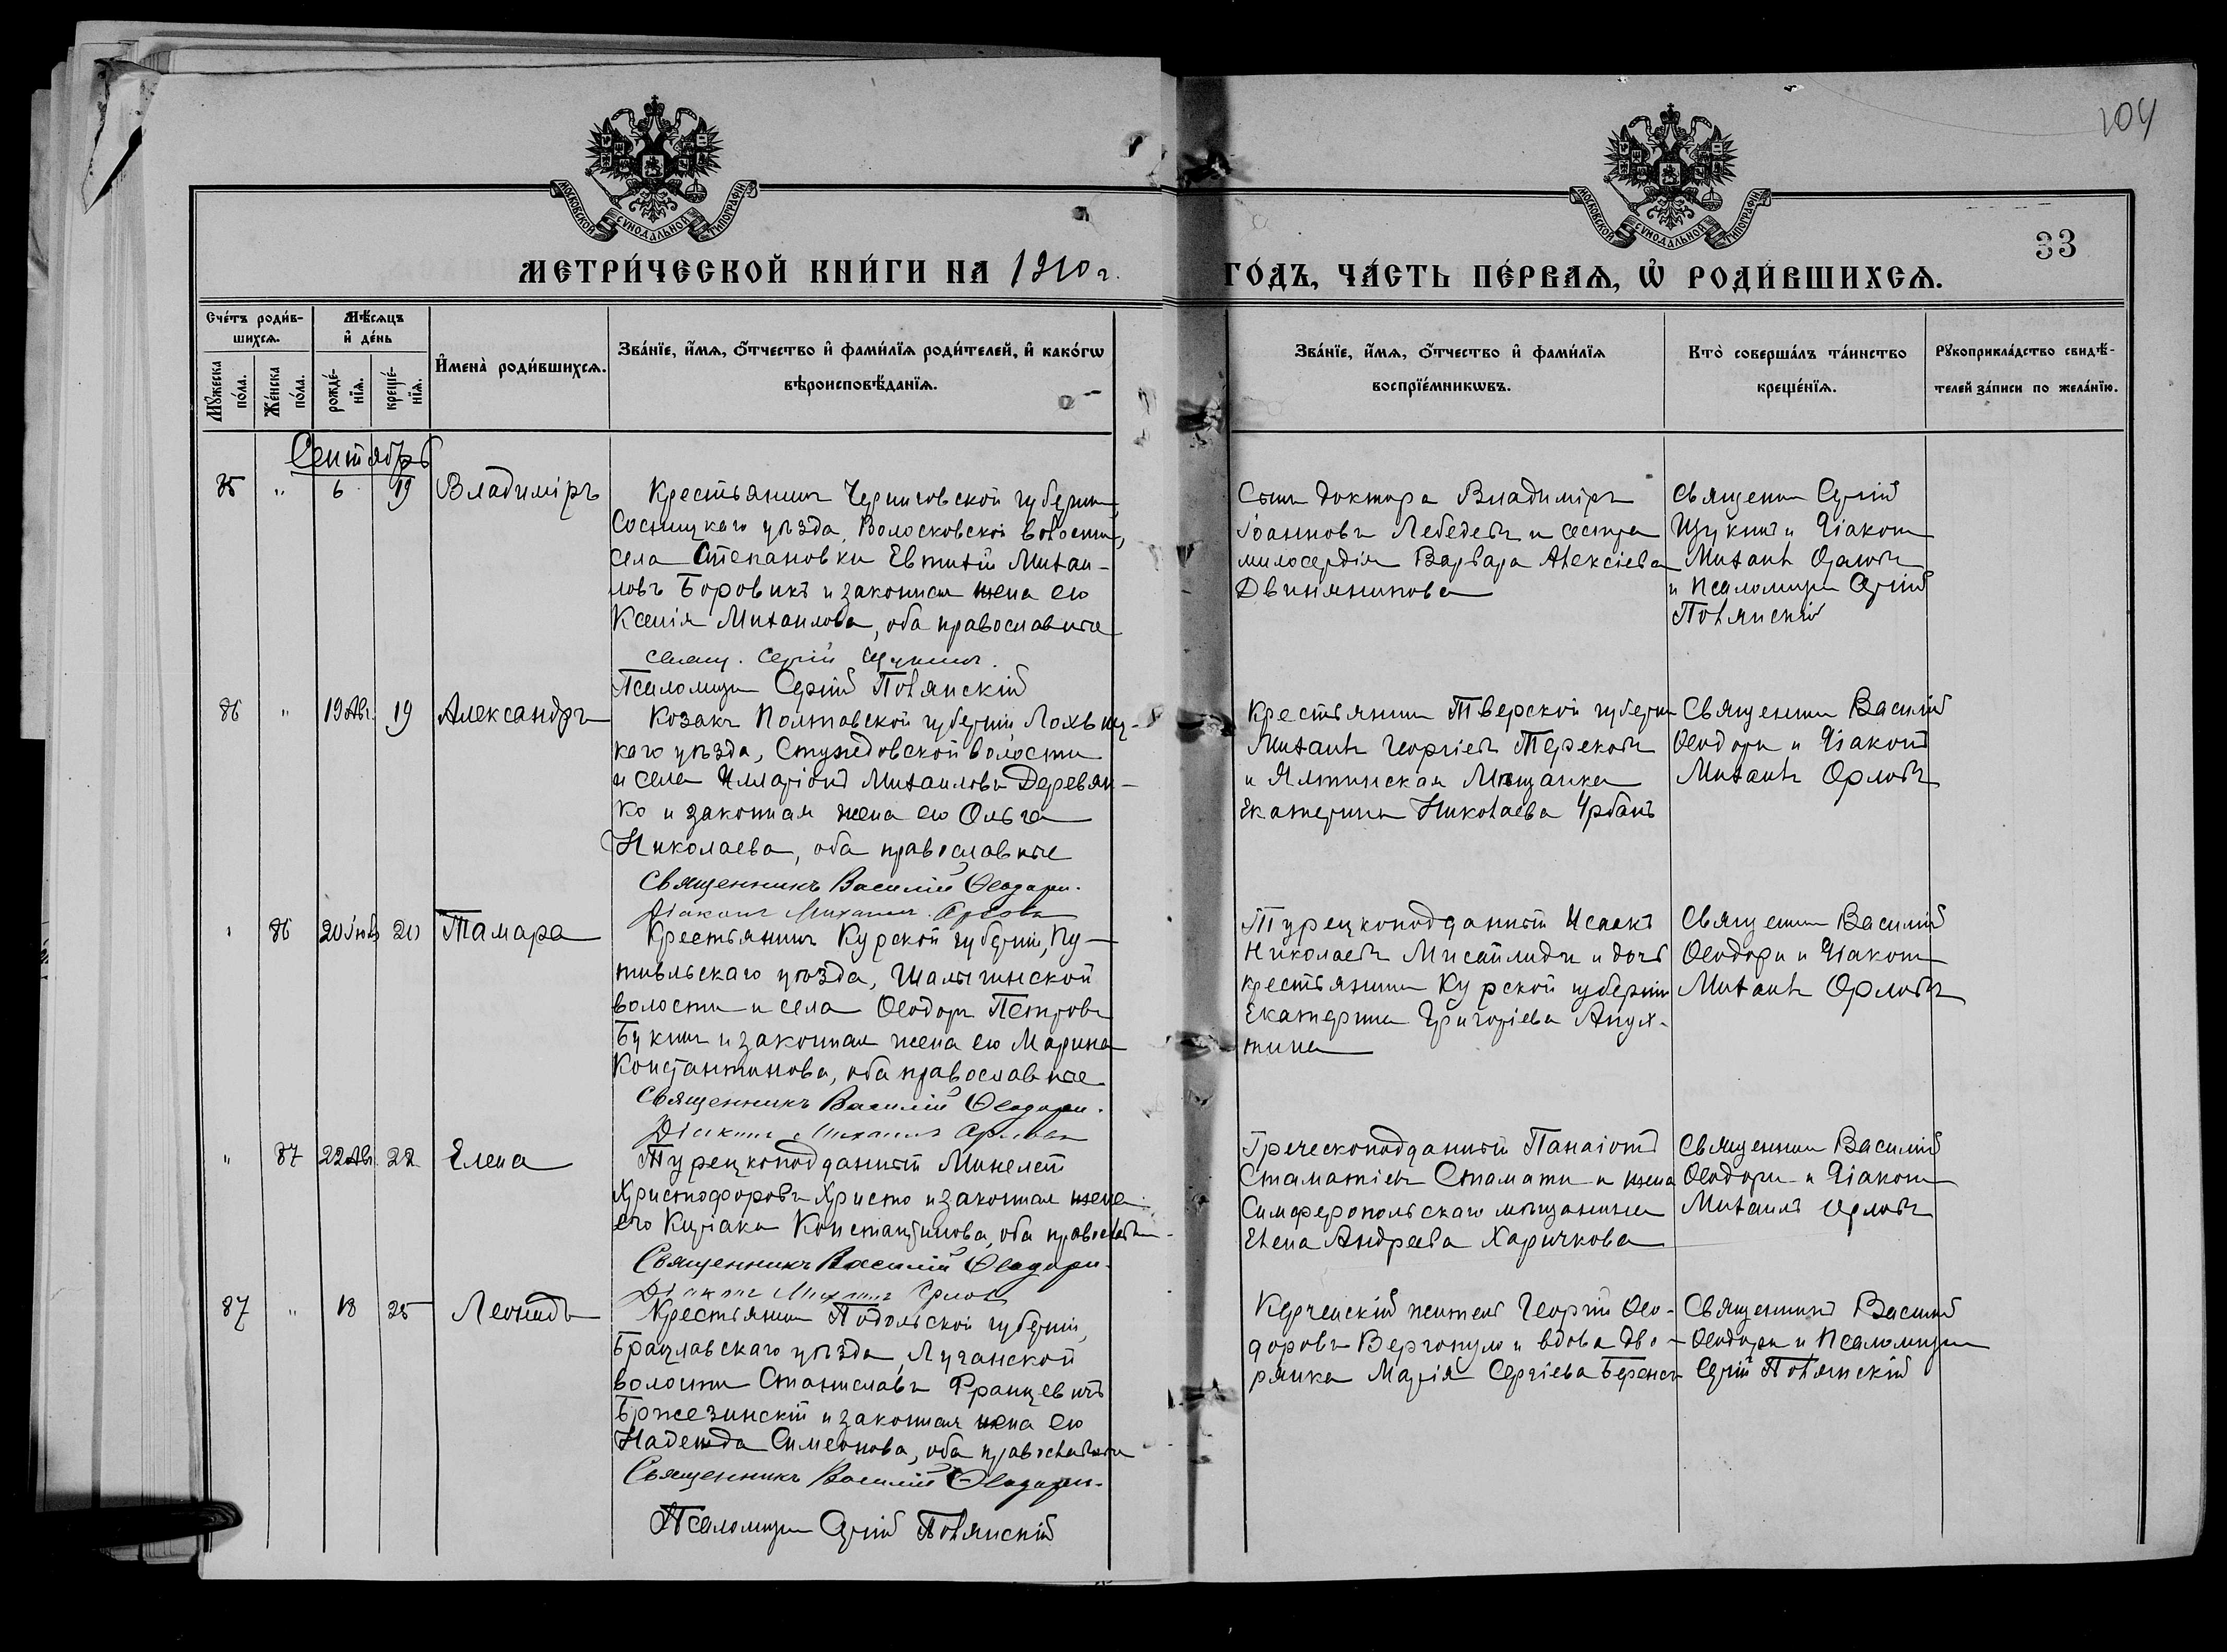 104
33
МОСКОВСКОЙ СѴНОДАЛЬНОЙ ТИПОГРАФІИ
МОСКОВСКОЙ СѴНОДАЛЬНОЙ ТИПОГРАФІИ
МЕТРИ́ЧЕСКОЙ КНИ́ГИ НА 1910 г.
ГО́ДЪ, ЧА́СТЬ ПЕ́РВАѦ, Ѿ РОДИ́ВШИХСѦ.
Сче́тъ роди́в-
шихсѧ.
Мꙋ́жеска по́ла.
Же́нска по́ла.
Мѣ́сѧцъ
и҆ де́нь
рожде́-
нїѧ.
креще́-
нїѧ.
И҆мена̀ роди́вшихсѧ.
Зва́нїе, и҆́мѧ, ѻ҆́тчество и҆ фами́лїѧ роди́телей, и҆ како́гѡ
вѣроисповѣ́данїѧ.
Зва́нїе, и҆́мѧ, ѻ҆́тчество и҆ фами́лїѧ
воспрїе́мникѡвъ.
Кто̀ соверша́лъ та́инство
креще́нїѧ.
Рꙋкоприкла́дство свидѣ́-
телей за́писи по жела́нїю.
Сентябрь
85 " 6 19 Владиміръ
Крестьянинъ Черниговской губерніи,
Сосницкаго уѣзда, Волосковской волости,
села Степановки Евтихій Михаи-
ловъ Боровикъ и законная жена его
Ксенія Михаилова, оба православные
Свящ. Сергій Щукинъ.
Псаломщ. Сергій Полянскій
Сынъ доктора Владиміръ
Іоанновъ Лебедевъ и сестра
милосердія Варвара Алексіева
Двинянинова
Священн. Сергій
Щукинъ и Діаконъ
Михаилъ Орловъ
и Псаломщ. Сергій
Полянскій
86 " 19 Авг. 19 Александръ
Козакъ Полтавской губерніи Лохвиц-
каго уѣзда,
волости
и села Илларіонъ Михаиловъ Деревян-
ко и законная жена его Ольга
Николаева, оба православные
Священникъ Василій Ѳеодори.
Діаконъ Михаилъ Орловъ
Крестьянинъ Тверской губерніи
Михаилъ Георгіевъ Терековъ
и Ялтинская Мѣщанка
Екатерина Николаева Урбанъ
Священникъ Василій
Ѳеодори и Діаконъ
Михаилъ Орловъ
" 86 20 20 Тамара
Крестьянинъ Курской губерніи, Пу-
тивльскаго уѣзда, Шалыгинской
волости и села Ѳеодоръ Петровъ
Букинъ и законная жена его Марина
Константинова, оба православные
Священникъ Василій Ѳеодори.
Діаконъ Михаилъ Орловъ
Турецкоподданный Исаакъ
Николаевъ Мисаилиди и дочь
крестьянина Курской губерніи
Екатерина Григоріева Апух-
тина
Священн. Василій
Ѳеодори и Діаконъ
Михаилъ Орловъ
" 87 22 Авг. 22 Елена
Турецкоподданный
Христофоровъ Христо и законная жена
его Киріака Константинова, оба православн.
Священникъ Василій Ѳеодори.
Діаконъ Михаилъ Орловъ
Греческоподданный Панаіотъ
Стаматіевъ Стамати и жена
Симферопольскаго мѣщанина
Елена Андреева Харичкова
Священникъ Василій
Ѳеодори и Діаконъ
Михаилъ Орловъ
87 " 18 25 Леонидъ
Крестьянинъ Подольской губерніи,
Брацлавскаго уѣзда, Луганской
волости Станиславъ Францевичъ
Бржезинскій и законная жена его
Надежда Симеонова, оба православные
Священникъ Василій Ѳеодори.
Псаломщ. Сергій Полянскій
Керченскій житель Георгій Ѳео-
доровъ Вергопуло и вдова Дво-
рянка Марія Сергіева Беренсъ
Священникъ Василій
Ѳеодори и Псаломщ.
Сергій Полянскій